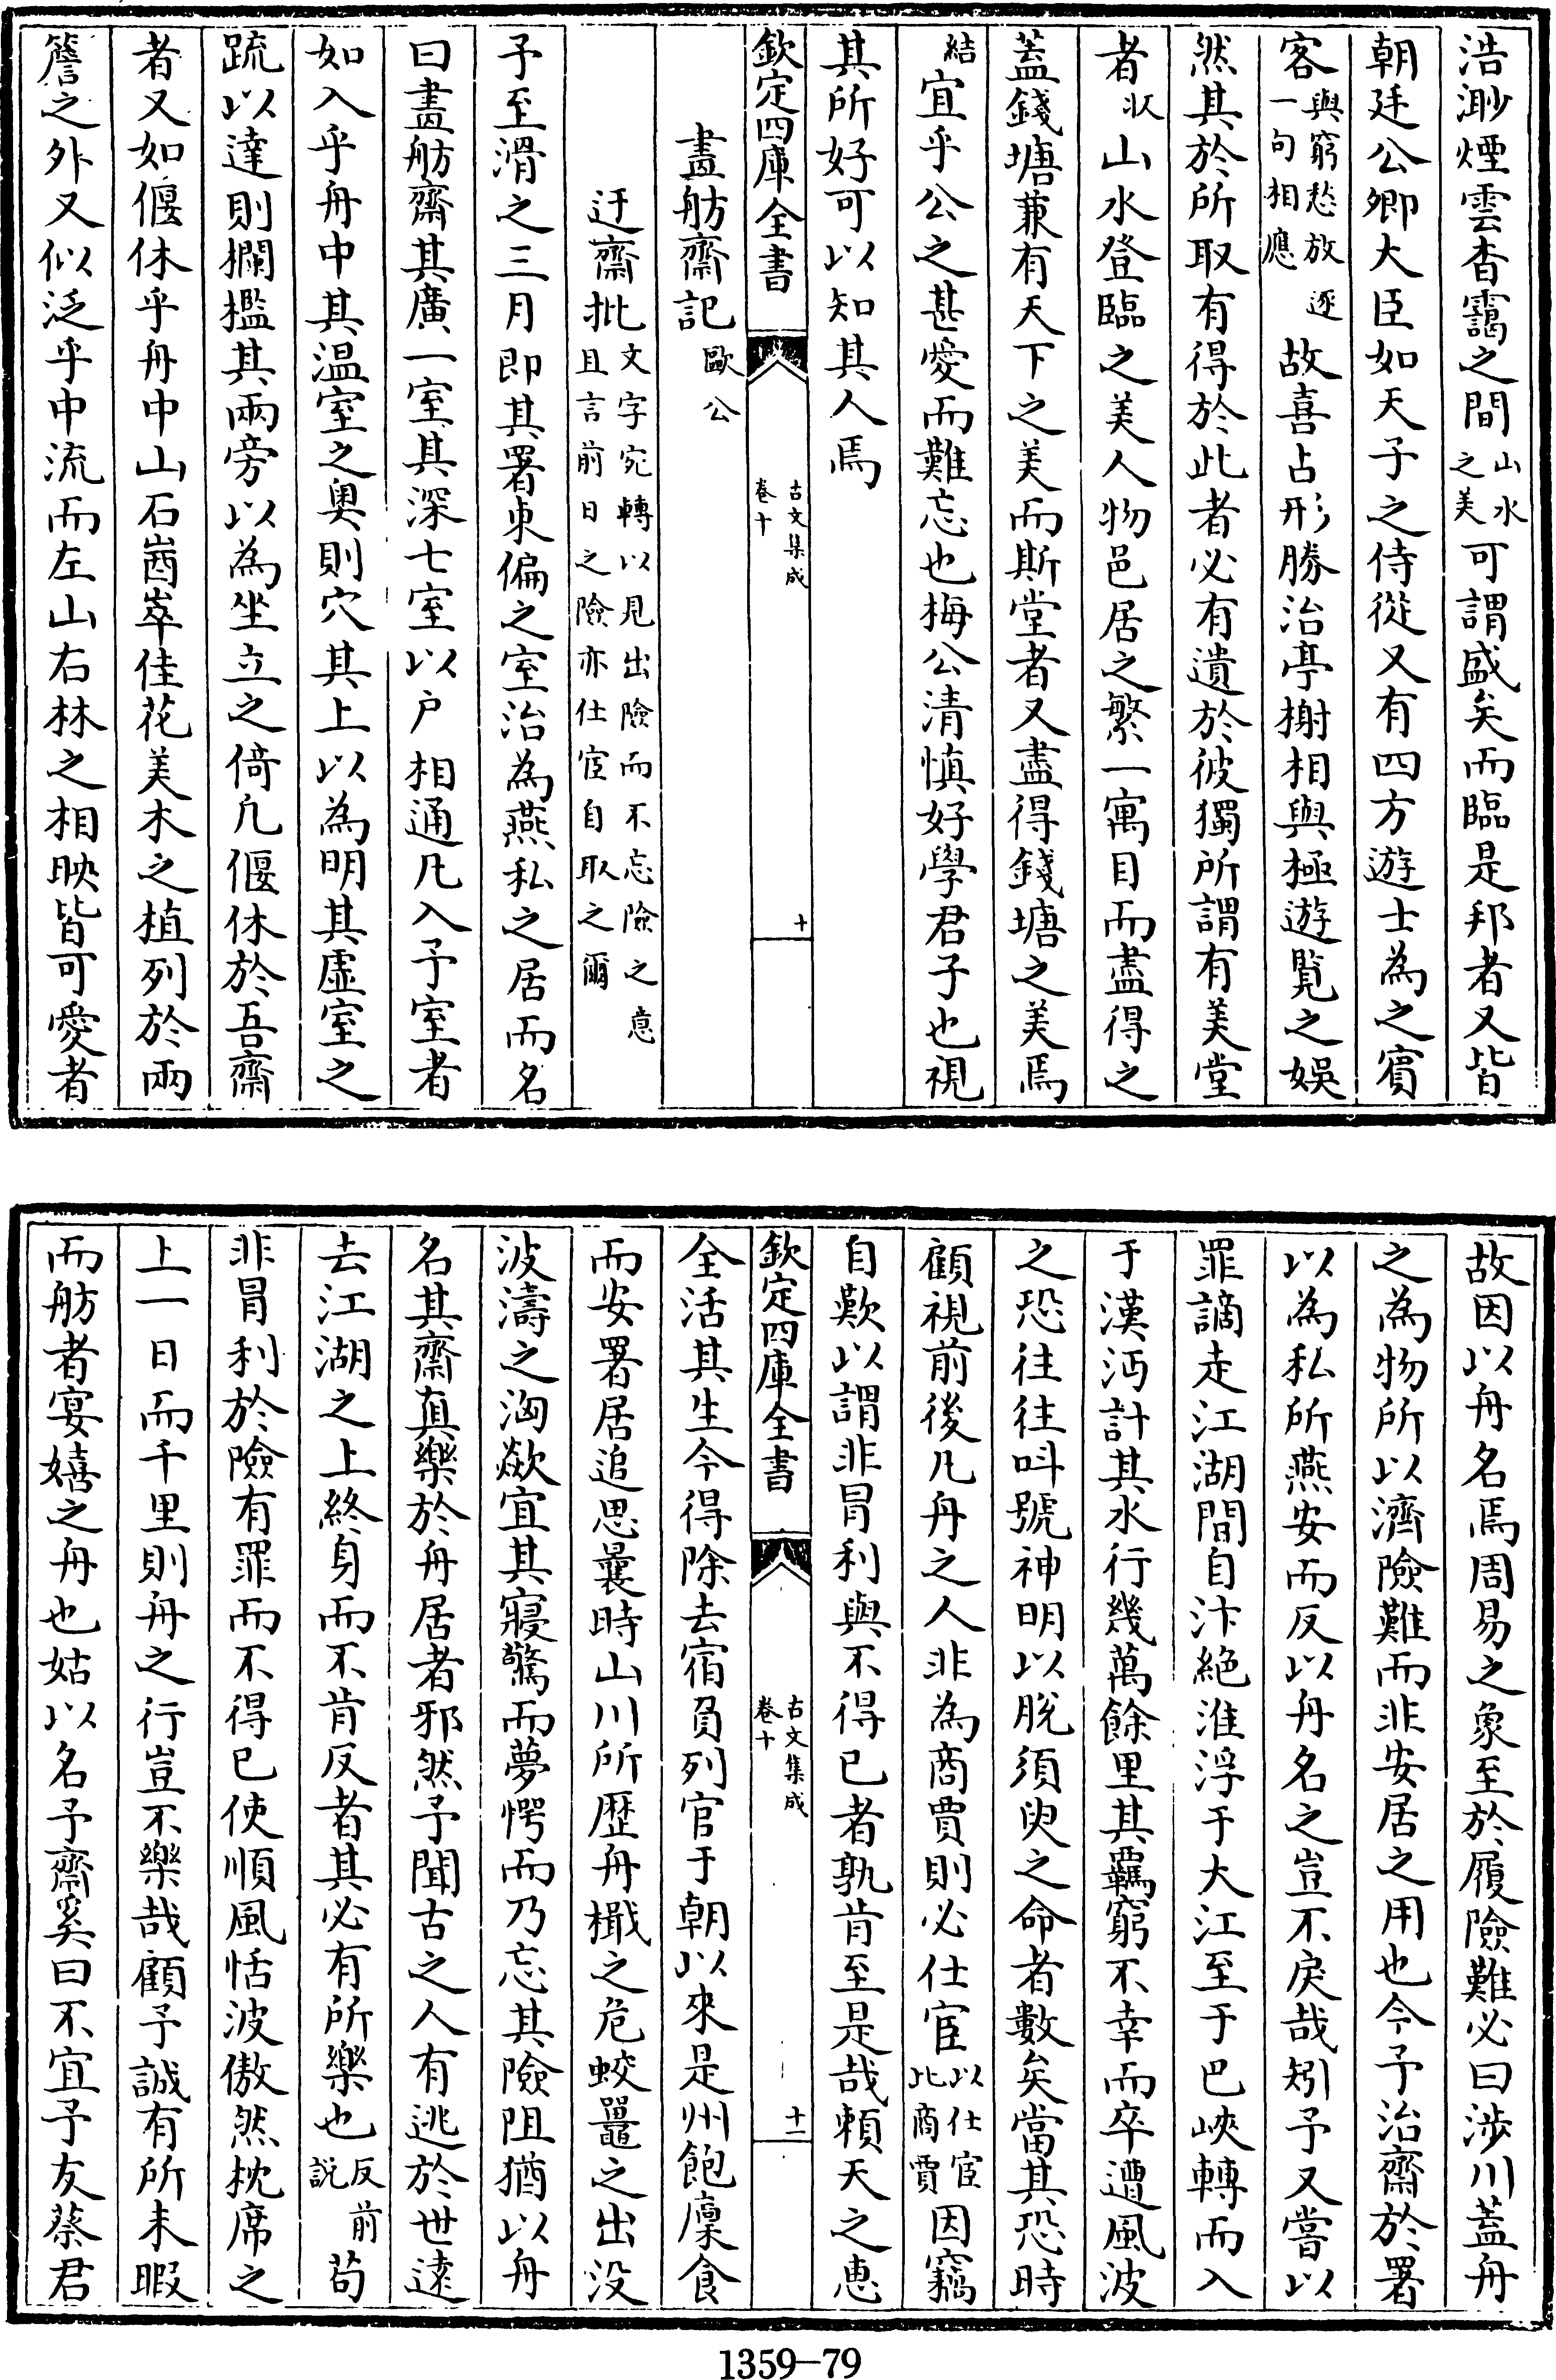 浩渺煙雲杳靄之間山水之美可謂盛矣而臨是邦者又皆
朝廷公卿大臣如天子之侍從又有四方遊士為之賓
客與窮愁放逐一句相應故喜占形勝治亭榭相與極遊覧之娱
然其於所取有得於此者必有遺於彼獨所謂有美堂
者収山水登臨之美人物邑居之繁一寓目而盡得之
蓋錢塘兼有天下之美而斯堂者又盡得錢塘之美焉
結宜乎公之甚愛而難忘也梅公清慎好學君子也視
其所好可以知其人焉
欽定四庫全書 古文集成卷十 十
畫舫齋記 歐公
迂齋批文字宛轉以見出險而不忘險之意且言前日之險亦仕宦自取之爾
予至滑之三月即其署東偏之室治為燕私之居而名
曰畫舫齋其廣一室其深七室以户相通凡入予室者
如入乎舟中其温室之奥則穴其上以為明其虛室之
疏以達則欄檻其兩旁以為坐立之倚凡偃休於吾齋
者又如偃休乎舟中山石崷崒佳花美木之植列於兩
簷之外又似泛乎中流而左山右林之相映皆可愛者
故因以舟名焉周易之象至於履險難必曰涉川蓋舟
之為物所以濟險難而非安居之用也今予治齋於署
以為私所燕安而反以舟名之豈不戾哉矧予又嘗以
罪謫走江湖間自汴絶淮浮于大江至于巴峽轉而入
于漢沔計其水行幾萬餘里其羈窮不幸而卒遭風波
之恐往往叫號神明以脫須臾之命者數矣當其恐時
顧視前後凡舟之人非為商賈則必仕宦以仕宦比商賈因竊
自歎以謂非冒利與不得已者孰肯至是哉賴天之惠
欽定四庫全書 古文集成卷十 十一
全活其生今得除去宿負列官于朝以來是州飽廩食
而安署居追思曩時山川所歴舟檝之危蛟鼉之出没
波濤之洶歘宜其寢驚而夢愕而乃忘其險阻猶以舟
名其齋真樂於舟居者邪然予聞古之人有逃於世遠
去江湖之上終身而不肯反者其必有所樂也反前説苟
非冒利於險有罪而不得已使順風恬波傲然枕席之
上一日而千里則舟之行豈不樂哉顧予誠有所未暇
而舫者宴嬉之舟也姑以名予齋奚曰不宜予友蔡君
1359-79